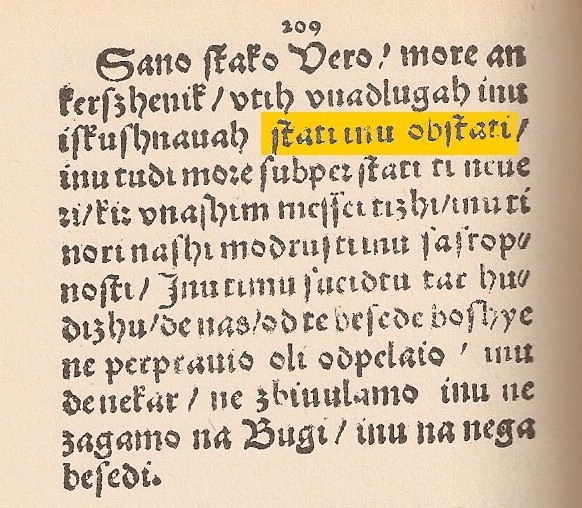 209
Sano stako Vero / more an
kerszhenik / vtih vnadlugah inu
iskushnauah stati inu obstati /
inu tudi more subper stati ti neue
ri / kir vnashim messei tizhi / inu ti
nori nashi modrusti inu sastop⸗
nosti / Inu timu sueidtu tar hu⸗
dizhu / de nas / od te besede boshye
ne perprauio oli odpelaio / inu
denekar / ne zbiuulamo inu ne
zagamo na Bugi / inu na nega
besedi.